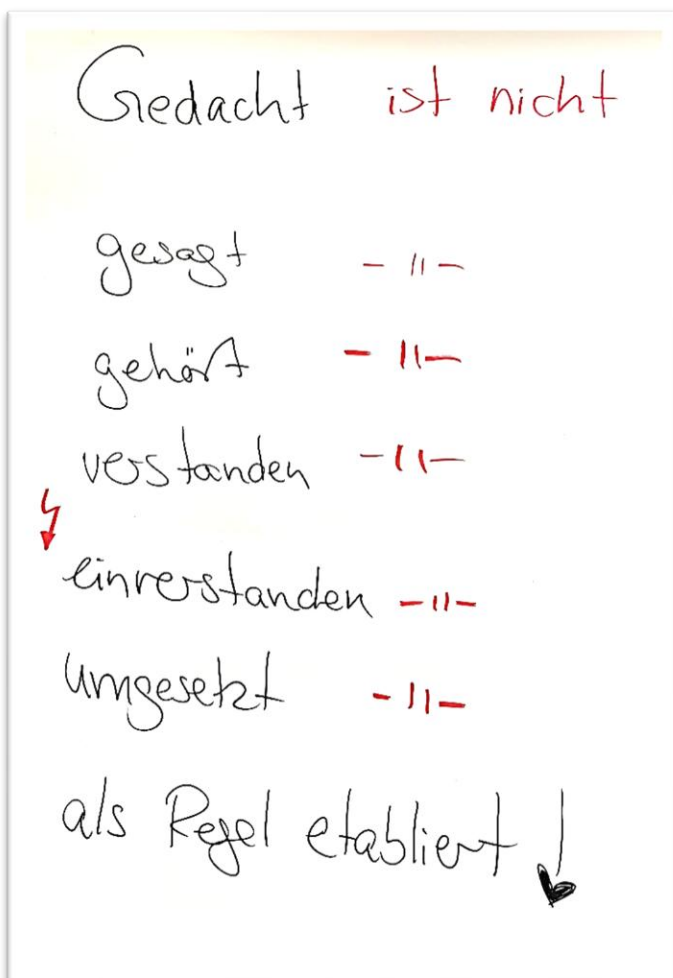 Gedacht ist nicht
gesagt - " -
gehört - " -
verstanden - " -
einverstanden - " -
umgesetzt - " -
als Regel etabliert!